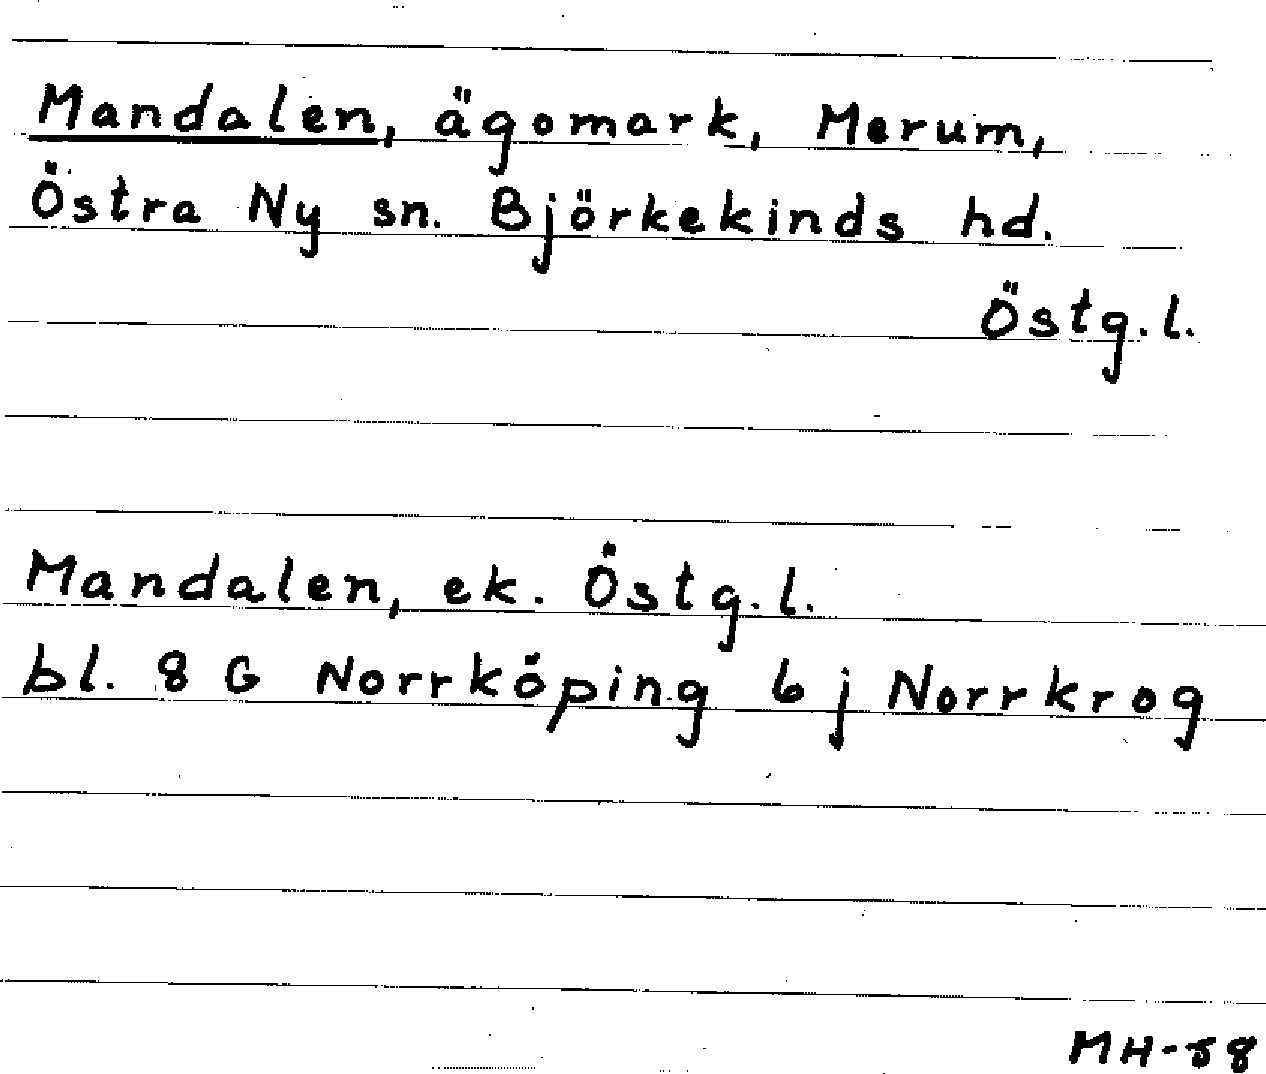 Mandalen, ägomark, Merum,
Östra Ny sn. Björkekinds hd.
Östg.l.
Mandalen, ek. Östg.l.
bl. 8 G Norrköping 6 j Norrkrog
MH-58